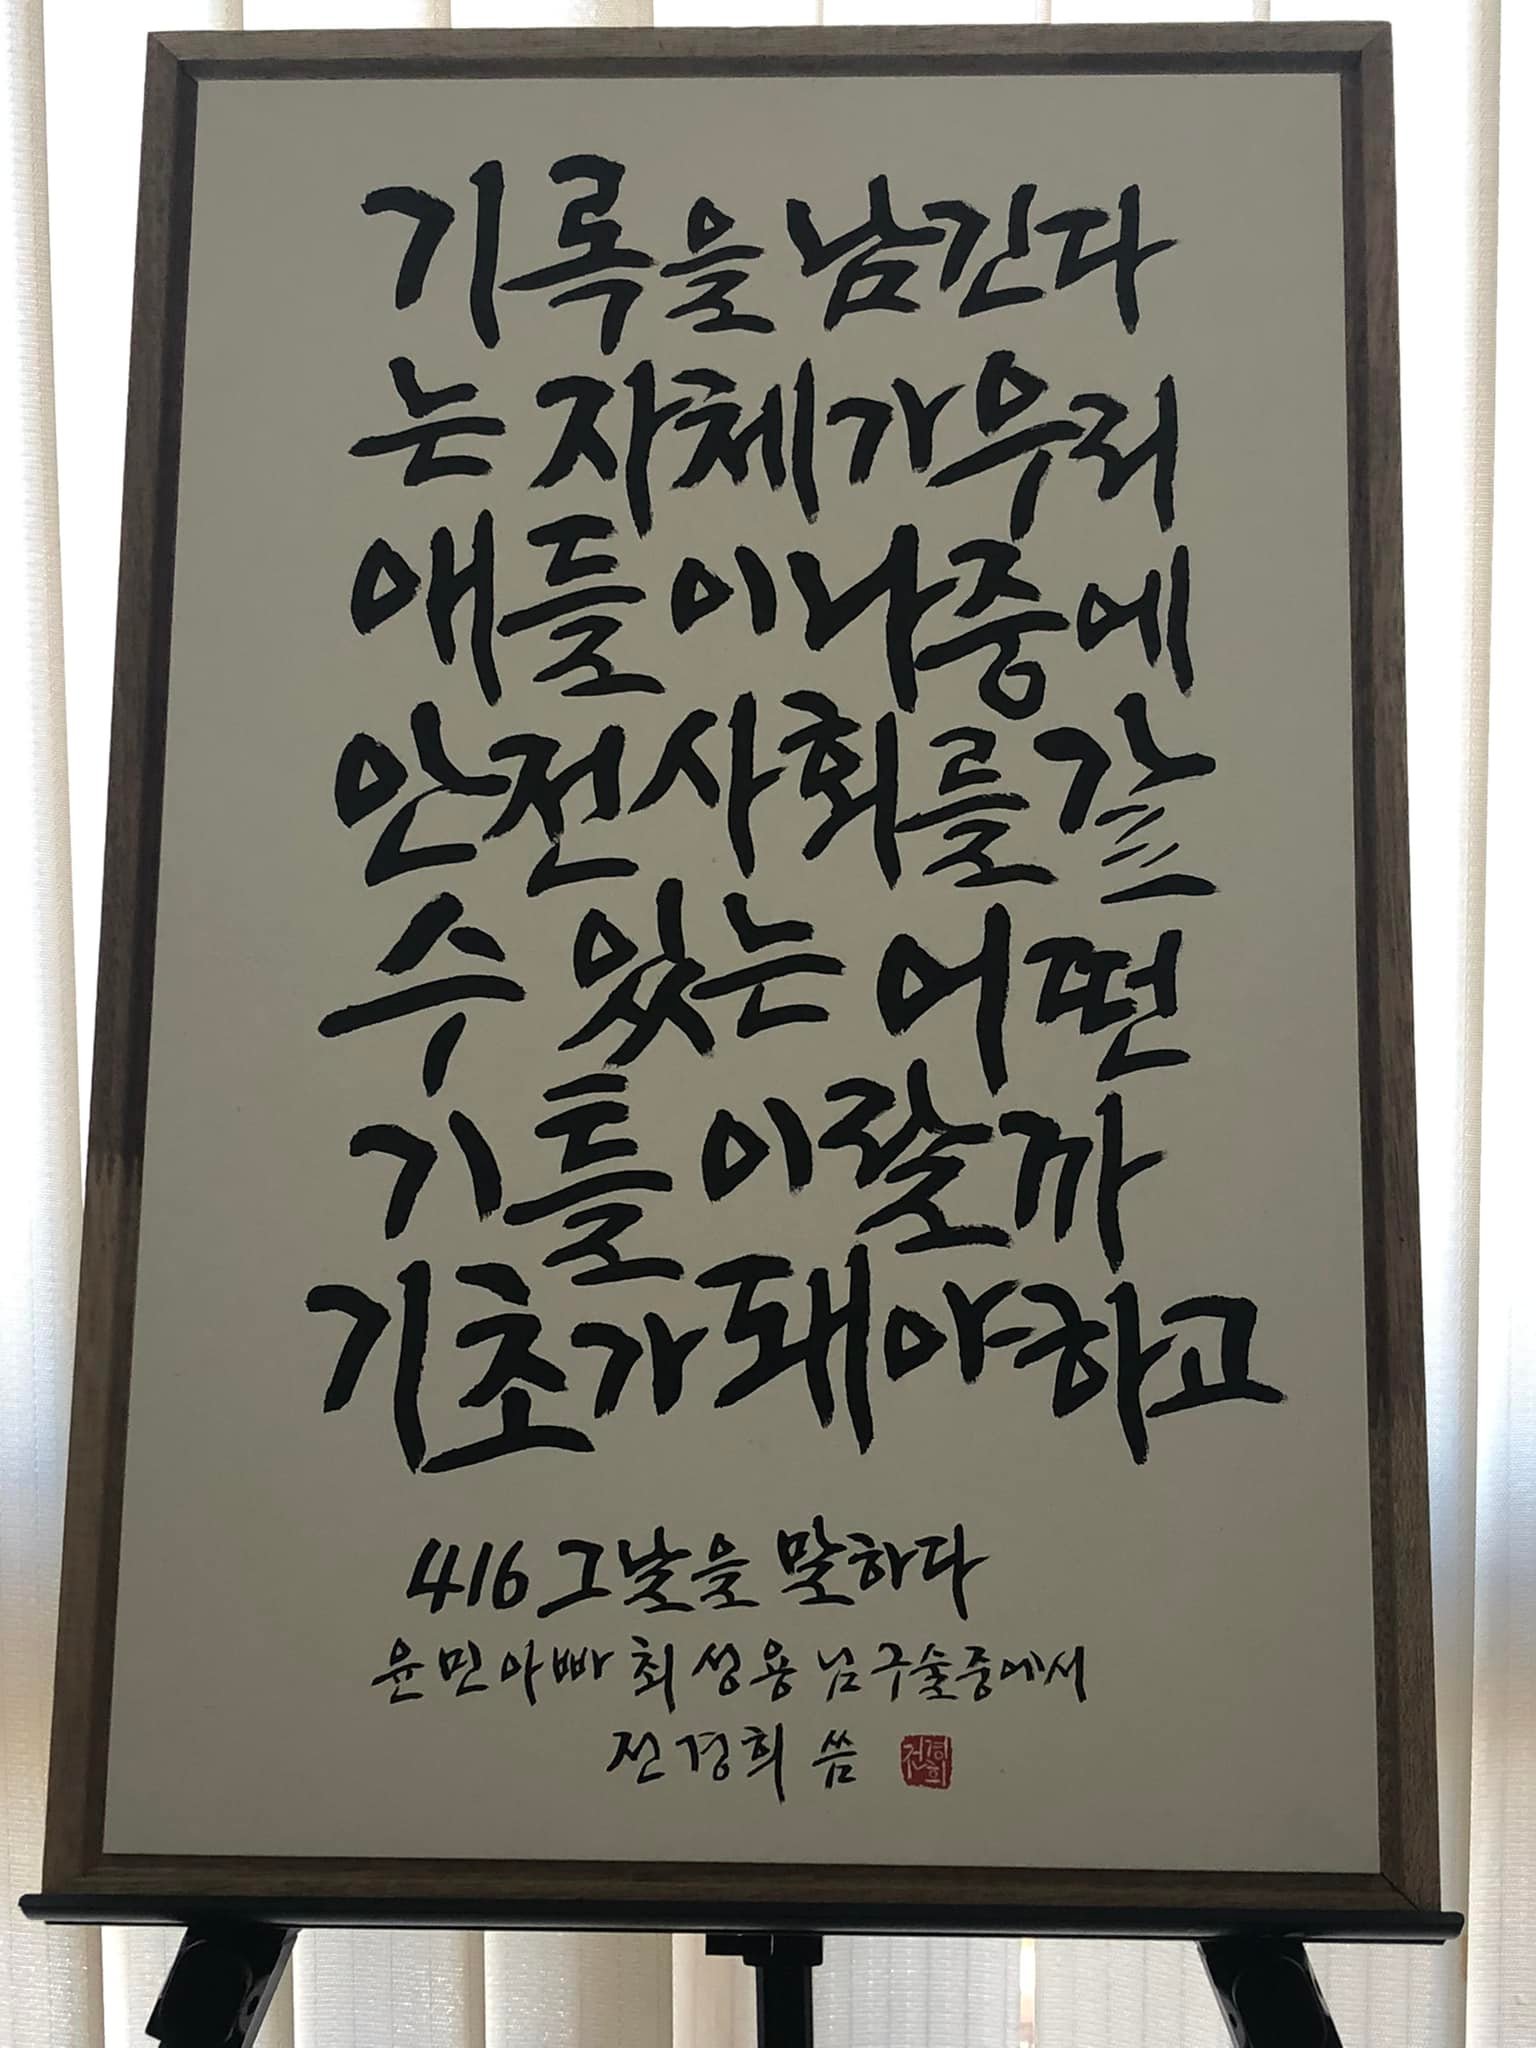 기록을 남긴다
는 자체가 우리
애들이 나중에
안전사회를 갈
수 있는 어떤
기틀이랄까
기초가 돼야 하고
416 그날을 말하다
윤민아빠 최성용님 구술중에서
전경희 씀
전경희